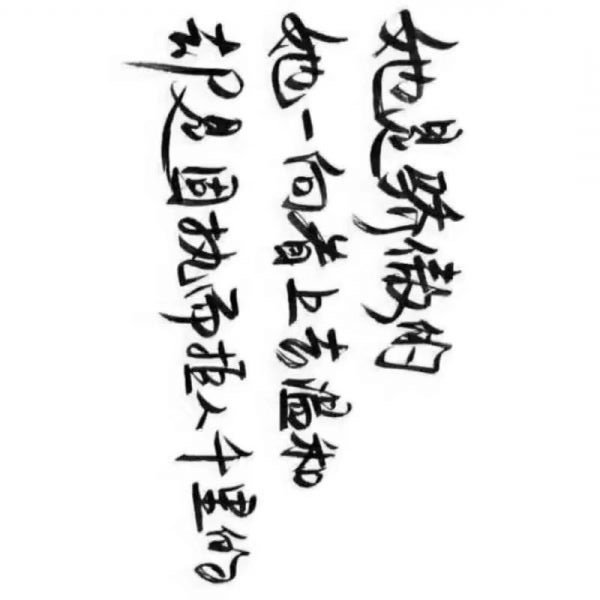 她是骄傲的
她一向看上去温和
却是固执而拒人千里的